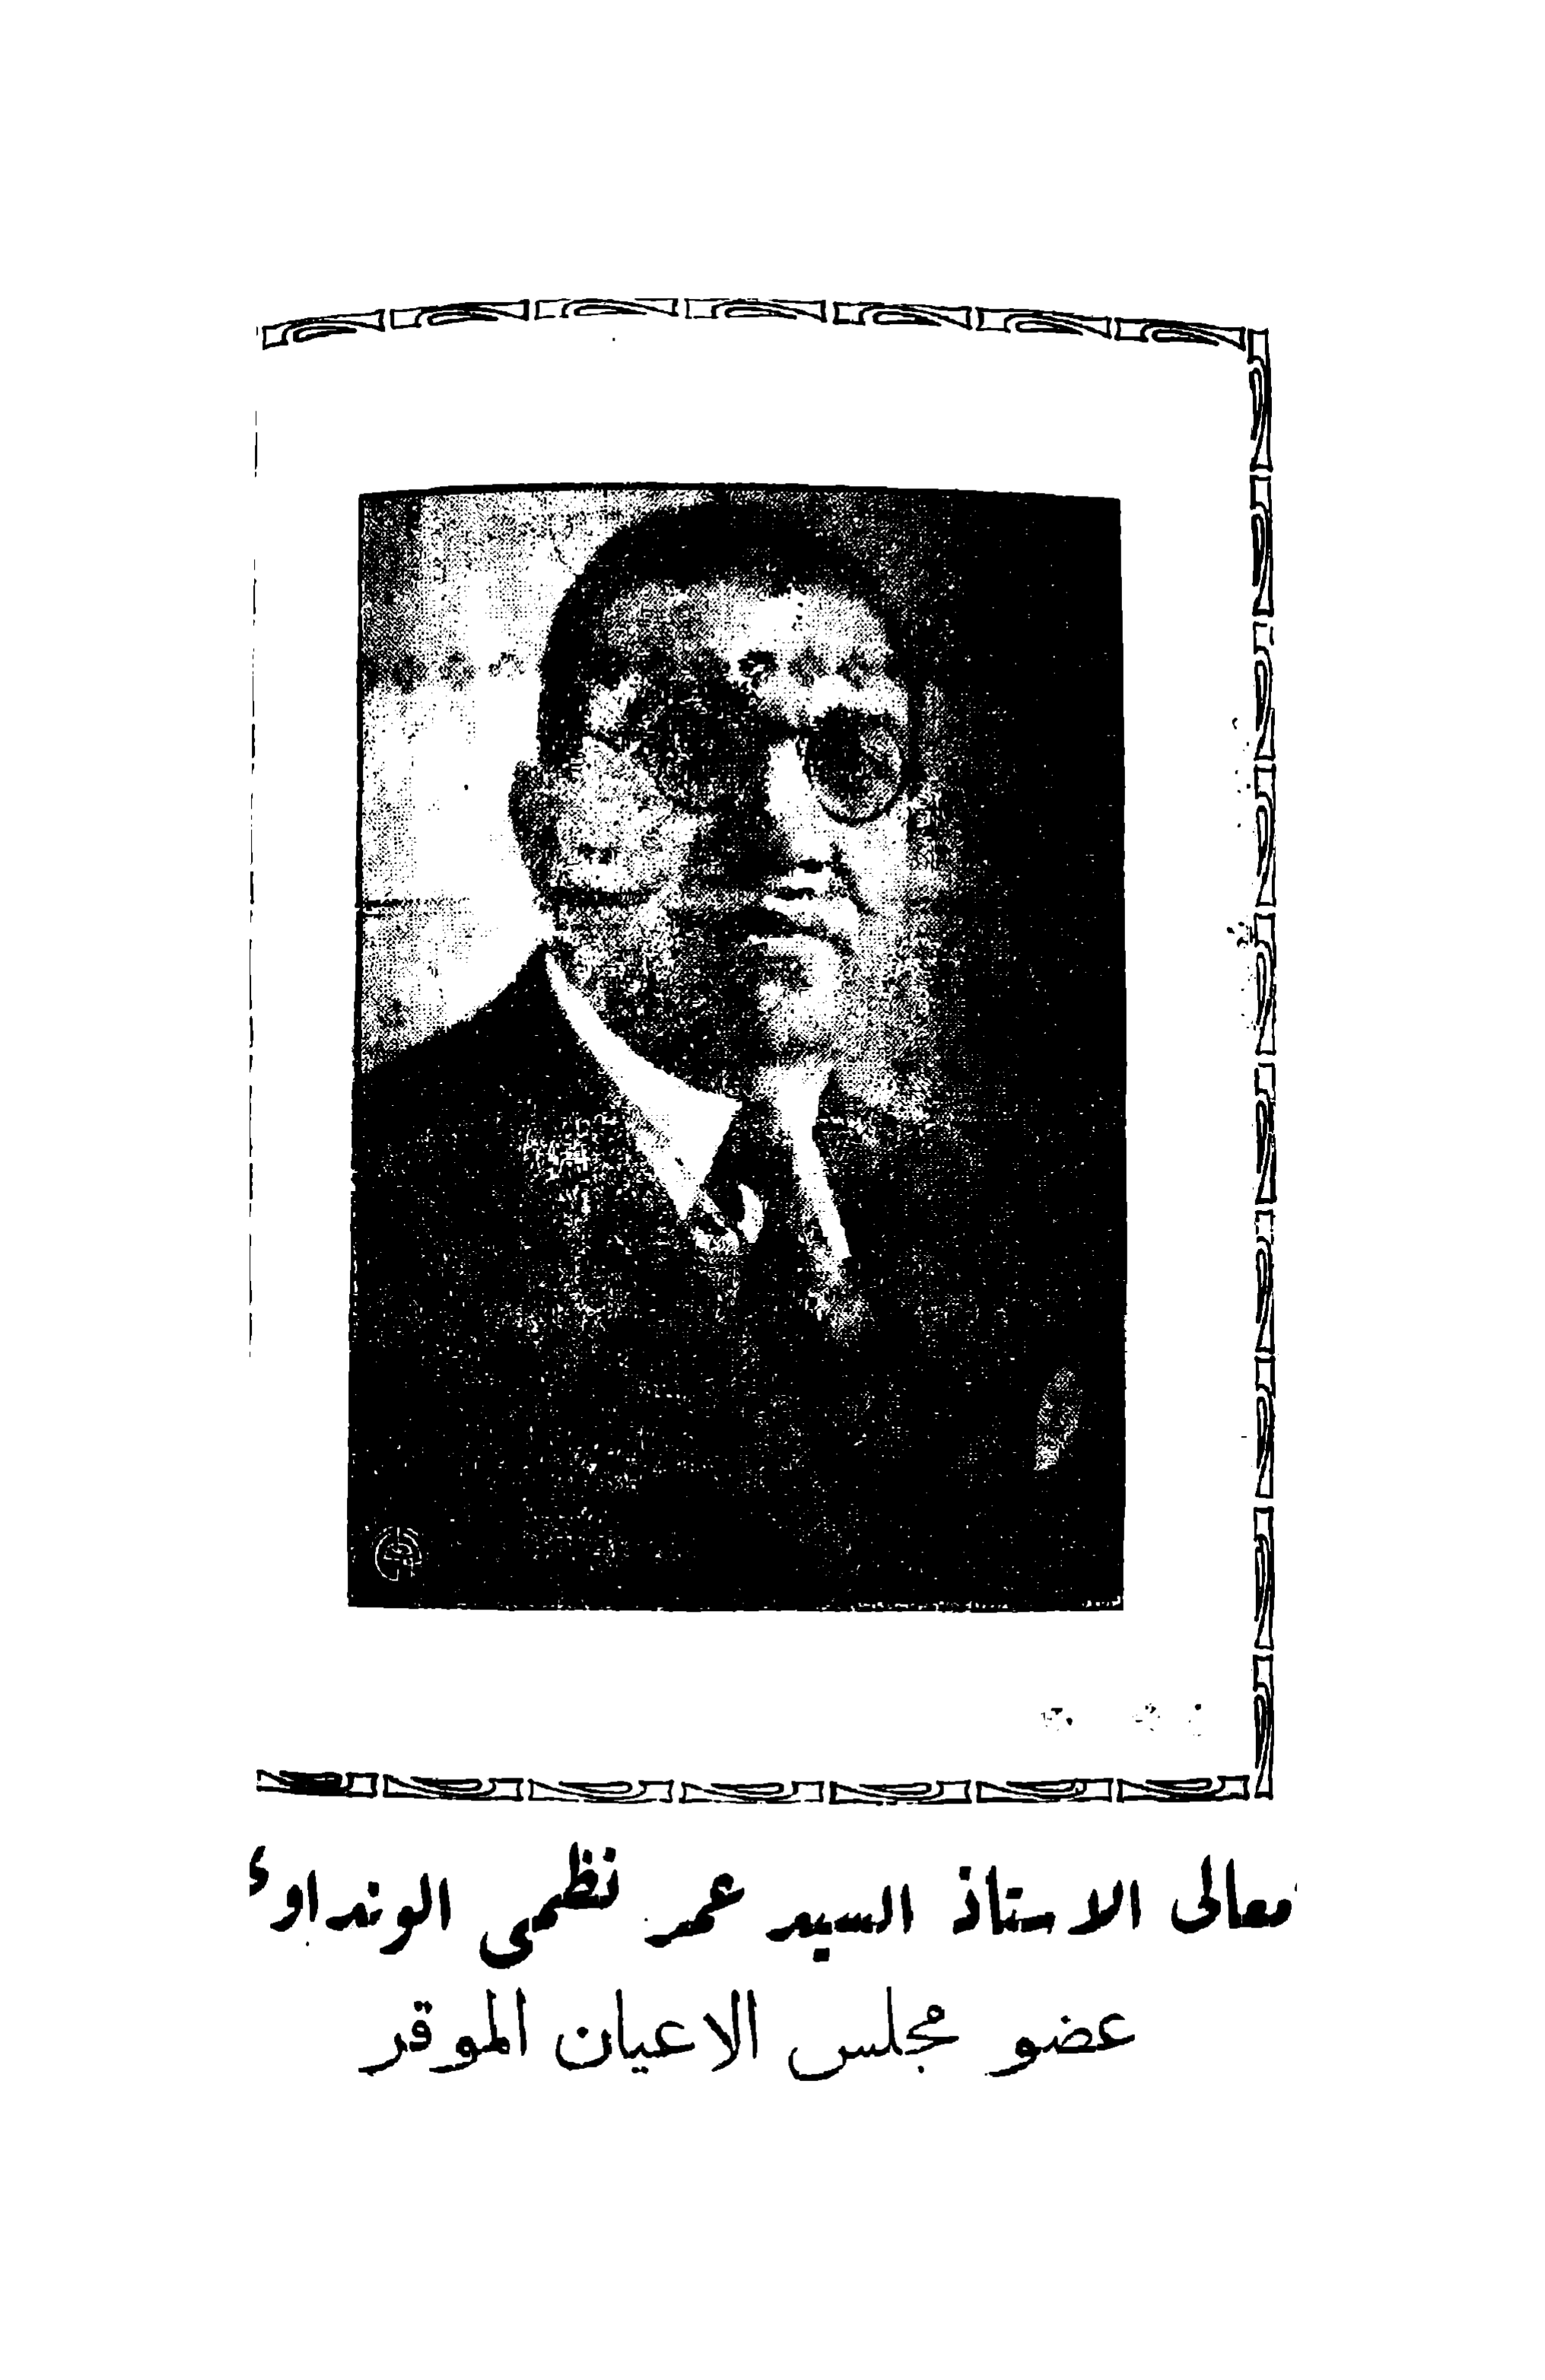 معالى الاستاذ السيد عمر نظمى الونداوى
عضو مجلس الاعيان الموقر